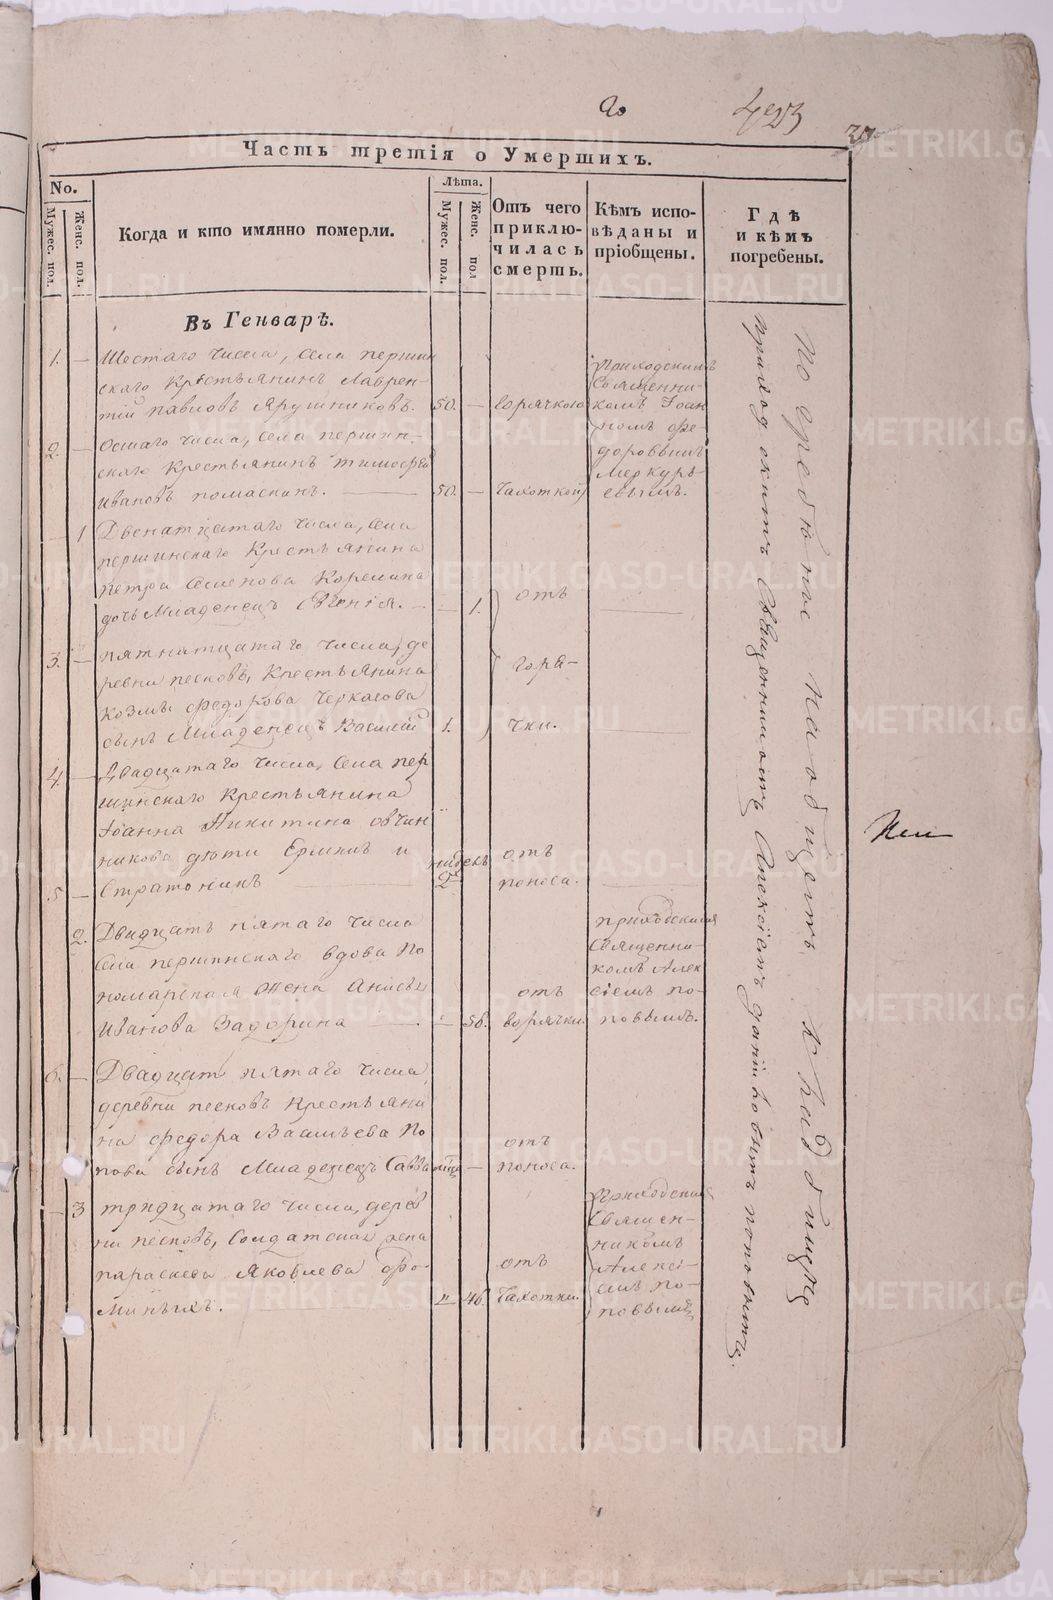 423
Часть третія о Умершихъ.
No.
Мужес. пол.
Женс. пол.
Когда и кто имянно померли.
Лѣта.
Мужес. пол.
Женс. пол
Отъ чего приключилась смерть.
Кѣмъ исповѣданы и пріобщены.
Гдѣ и кѣмъ погребены.
Въ Генварѣ.
1. — Шестаго числа, села першин
скаго Крестьянинъ Лаврен-
тій павловъ Ярушниковъ. 50. — горячкою
Приходскимъ
Священни-
комъ Іоан
номъ фе-
доровымъ
Меркурь
евымъ.
2. — Осмаго числа, села першин-
скаго Крестьянинъ тимофей
Ивановъ помаскинъ. — 50. — Чахоткой
1 Двенатцатаго числа, села
першинскаго Крестьянина
петра Семенова Корелина
дочь Младенецъ Евгенія. — — 1.
отъ
горя-
чки.
3. — пятнатцатаго числа, де
ревни песковъ, Крестьянина
Козмы федорова Черкасова
сынъ Младенецъ Василій 1.
4. — Двадцатаго числа, села пер
шинскаго Крестьянина
Іоанна Никитина овчин
никова дѣти Ермилъ и
5 — Стратоникъ — недель 2 отъ
поноса. —
2. Двадцать пятаго числа
села першинскаго вдова по
номарская жена Анисья
Иванова Задорина — — 56. отъ
горячки
приходским
Священни-
комъ Алек
сіемъ по-
повымъ.
6. — Двадцать пятаго числа
деревни песковъ Крестьяни
на федора Васильева По
пова сынъ Младенецъ Савва — отъ
поноса.
— 3 тридцатаго числа, дерев
ни песковъ, Солдатская жена
параскева Яковлева фо-
миныхъ. 46. отъ
Чахотки.
Приходским
Священ-
никомъ
Алексі-
емъ по-
повымъ
По гребеніе на общемъ кладбищѣ
приход скимъ Священникомъ Алексіемъ попов